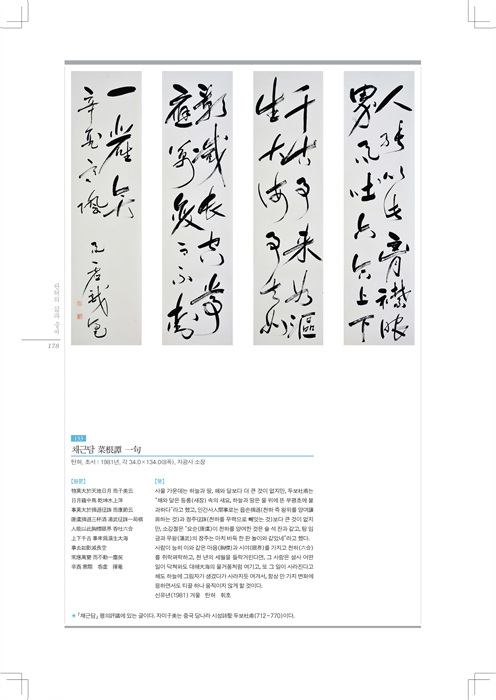 人能以此胸襟眼
界吞吐六合上下
千古事來如漚
生大海事去如
一塵矣
탄허의 삶과 궁적
178
133
채근담 菜根譚 一句
탄허, 초서 | 1981년, 각 34.0×134.0(8폭), 자광사 소장
[원문]
物莫大於天地日月 而子美云
日月籠中鳥 乾坤水上萍
事莫大於揖遜征誅 而康節云
唐虞揖遜三杯酒 湯武征誅一局棋
人能以此胸襟眼界 呑吐六合
上下千古 事來如漚生大海
事去如影滅長空
常應萬變 而不動一塵矣
辛酉 呑虛 揮毫
[역]
사물 가운데는 하늘과 땅, 해와 달보다 더 큰 것이 없지만, 두보杜甫는
"해와 달은 등롱(새장) 속의 새요, 하늘과 땅은 물 위에 뜬 부평초에 불
과하다"라고 했고, 인간사人間事로는 읍손揖遜(천하 즉 왕위를 양여讓
與하는 것)과 정주征誅(천하를 무력으로 빼앗는 것)보다 큰 것이 없지
만, 소강절은 "요순(唐虞)이 천하를 양여한 것은 술 석 잔과 같고, 탕 임
금과 무왕(湯武)의 정주는 마치 바둑 한 판 놀이와 같았네"라고 했다.
사람이 능히 이와 같은 마음(胸襟)과 시야(眼界)를 가지고 천하(六合)
를 쥐락펴락하고, 천 년의 세월을 들락거린다면, 그 사람은 설사 어떤
일이 닥쳐와도 대해大海의 물거품처럼 여기고, 또 그 일이 사라진다고
해도 하늘에 그림자가 생겼다가 사라지듯 여겨서, 항상 만 가지 변화에
응하면서도 티끌 하나 움직이지 않게 할 것이다.
신유년(1981) 겨울 탄허 휘호
※ 『채근담』 평의評議에 있는 글이다. 자미子美는 중국 당나라 시성詩聖 두보杜甫(712~770)이다.